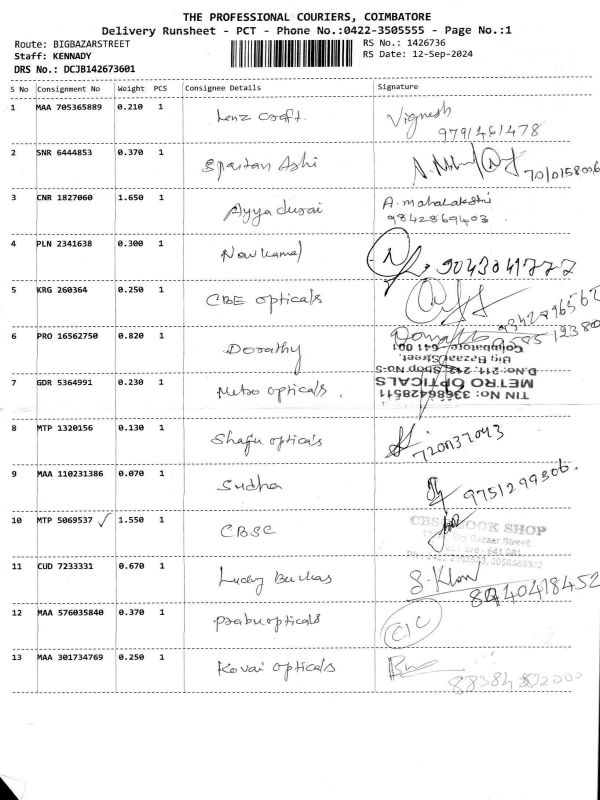 THE PROFESSIONAL COURIERS, COIMBATORE
Delivery Runsheet - PCT - Phone No.:0422-3505555 - Page No.:1
Route: BIGBAZARSTREET
RS No.: 1426736
Staff: KENNADY
RS Date: 12-Sep-2024
DRS No.: DCJB142673601
S No Consignment No Weight PCS Consignee Details Signature
1 MAA 705365889 0.210 1 Lenz craft. Vignesh
9791481478
2 SNR 6444853 0.370 1 Spaitan Ashi
3 CNR 1827060 1.650 1 Ayyadurai A. mahalakshmi
9842869403.
4 PLN 2341638 0.300 1 Navkamal 9043041777
5 KRG 260364 0.250 1 CBE opticals
6 PRO 16562750 0.820 1 Dorathy
Coimbatore-641 001
Big Bazaar Street,
D.No:211, 212, Shop No-5
7 GDR 5364991 0.230 1 Metro opticals.
METRO OPTICALS
TIN No: 33686428511
8 MTP 1320156 0.130 1 Shafu opticals
9 MAA 110231386 0.070 1 Sudha 9751299306.
10 MTP 5069537 ✓ 1.550 1 CBSC
BOOK SHOP
Big Bazaar Street
11 CUD 7233331 0.670 1 Lucky Buckas S. Khan
8940418452
12 MAA 576035840 0.370 1 prabu opticals CIC
13 MAA 301734769 0.250 1 Kovai opticals